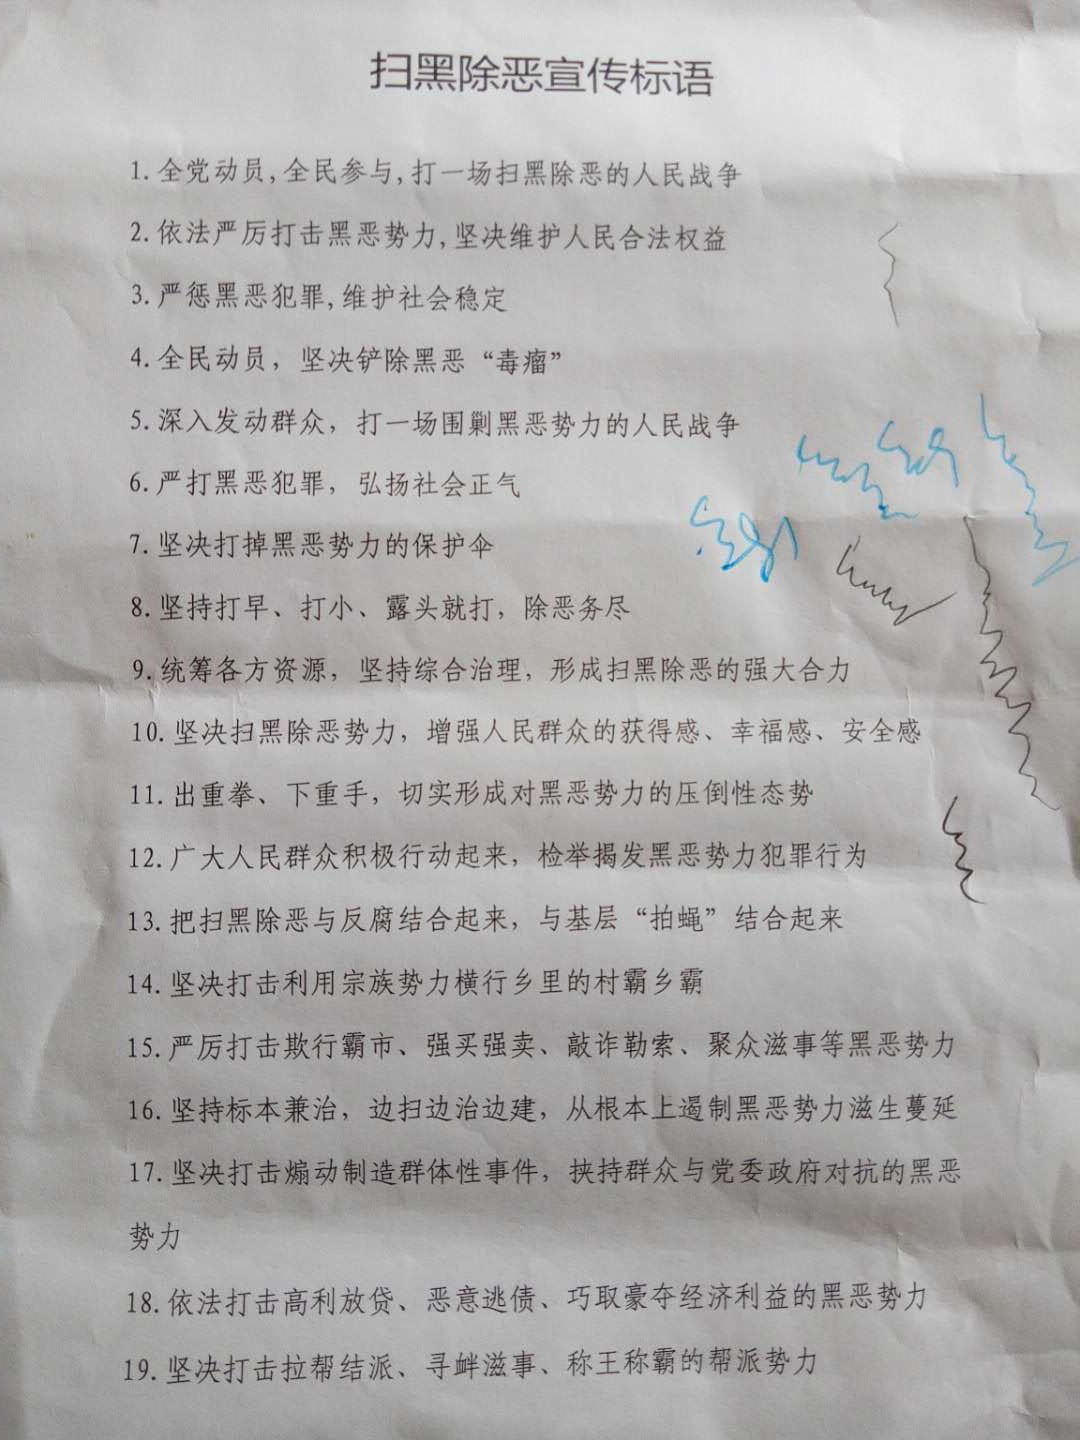 扫黑除恶宣传标语
1.全党动员,全民参与,打一场扫黑除恶的人民战争
2.依法严厉打击黑恶势力,坚决维护人民合法权益
3.严惩黑恶犯罪,维护社会稳定
4.全民动员，坚决铲除黑恶“毒瘤”
5.深入发动群众，打一场围剿黑恶势力的人民战争
6.严打黑恶犯罪，弘扬社会正气
7.坚决打掉黑恶势力的保护伞
8.坚持打早、打小、露头就打，除恶务尽
9.统筹各方资源，坚持综合治理，形成扫黑除恶的强大合力
10.坚决扫黑除恶势力，增强人民群众的获得感、幸福感、安全感
11.出重拳、下重手，切实形成对黑恶势力的压倒性态势
12.广大人民群众积极行动起来，检举揭发黑恶势力犯罪行为
13.把扫黑除恶与反腐结合起来，与基层“拍蝇”结合起来
14.坚决打击利用宗族势力横行乡里的村霸乡霸
15.严厉打击欺行霸市、强买强卖、敲诈勒索、聚众滋事等黑恶势力
16.坚持标本兼治，边扫边治边建，从根本上遏制黑恶势力滋生蔓延
17.坚决打击煽动制造群体性事件，挟持群众与党委政府对抗的黑恶
势力
18.依法打击高利放贷、恶意逃债、巧取豪夺经济利益的黑恶势力
19.坚决打击拉帮结派、寻衅滋事、称王称霸的帮派势力